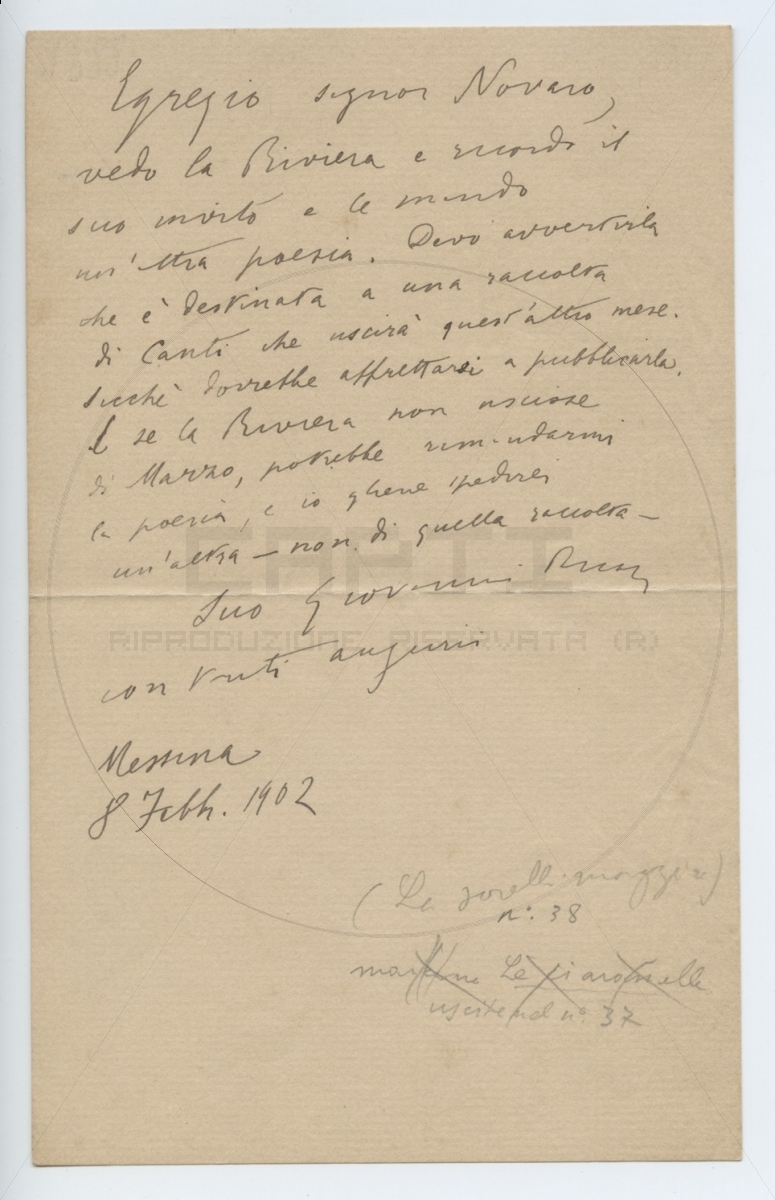 Egregio signor Novaro,
vedo la Riviera e ricordo il
suo invito e le mando
un'altra poesia. Devo avvertirla
che è destinata a una raccolta
di Canti che uscirà quest'altro mese.
Sicchè dovrebbe affrettarsi a pubblicarla.
E se la Riviera non uscisse
di Marzo, potrebbe rimandarmi
la poesia, e io gliene spedirei
un'altra — non di quella raccolta —
CARTI
Suo Giovanni
RIPRODUZIONE RISERVATA (R)
con tanti auguri
Messina
8 Febb. 1902
(La sorella maggiore)
n.° 38
manca
uscite nel n.° 37